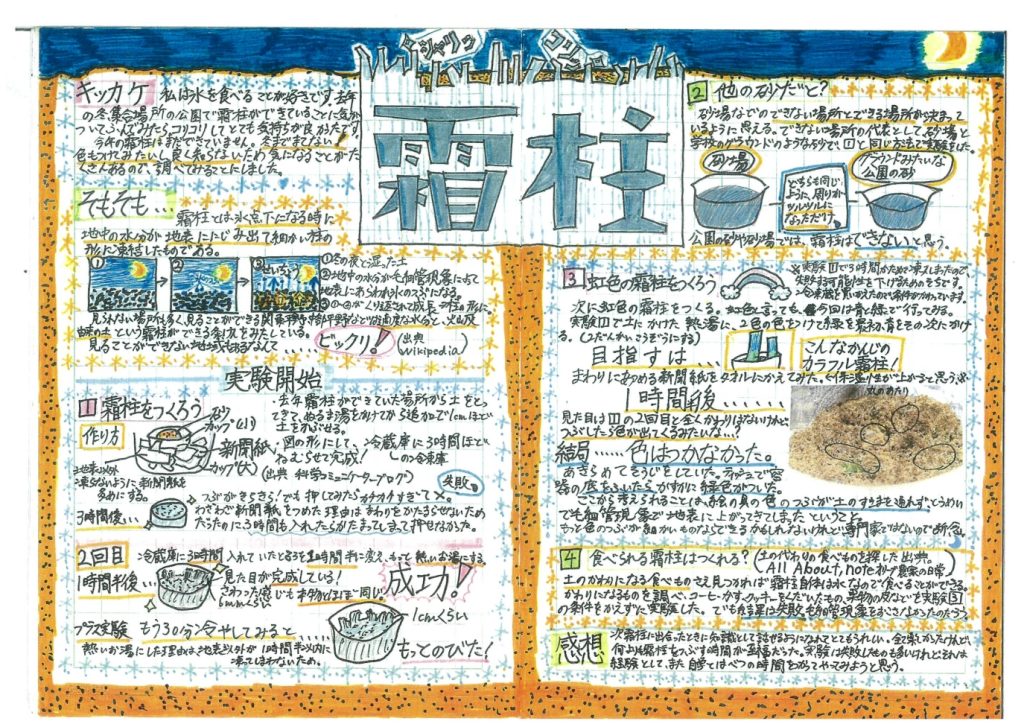 シャリッ
コリッ
霜柱
キッカケ 私は氷を食べることが好きです。去年
の冬、集合場所の公園で霜柱ができていることに気が
ついてふんでみたらコリコリしてとても気持ちが良かったです。
今年の霜柱はまだできていません。冬まで待てない!
色もつけてみたいし、良く知らないため気になることがた
くさんあるので、調べてみることにしました。
そもそも…
霜柱とは氷点下になる時に
地中の水分が地表ににじみ出て細かい柱の
形に凍結したものである。
① ② ③せいちょう
①冬の夜と湿った土
②地中の水分が毛細管現象によって
地表にあらわれ氷のつぶになる。
見られない場所も多く、見ることができる関東
土という霜柱ができる条件をみたしている。
見ることができない地域もあるなんて……ビックリ!
(出典 Wikipedia)
実験開始
1 霜柱をつくろう
作り方
カップ(小)
新聞紙
カップ(大)
・去年霜柱ができていた場所から土をとっ
てきて、ぬるま湯をかけてから追加で1cmほど
土をかぶせる。
・図の形にして、冷蔵庫に3時間ほど
ねむらせて完成!
(出典 科学コミュニケーターブログ)
地表以外
凍らないように新聞紙を
多めにする。
失敗
3時間後…
つぶがきらきら!でも押してみたらカチカチすぎて×。
わざわざ新聞紙をつめた理由はまわりをかたまらせないため
だったのに3時間も入れたらかたまってしまって押せなかった。
2回目
冷蔵庫に3時間入れていたところを1時間半に変え、もっと熱いお湯にする。
1時間半後…
見た目が完成している!
さわった感じも本物とほぼ同じ
成功!
1cmくらい
プラス実験 もう30分冷やしてみると……
もっとのびた!
熱いお湯にした理由は地表以外が1時間半以内に
凍ってしまわないため。
2 他の砂だと?
砂場などのできない場所とできる場所が決まって
いるように思える。できない場所の代表として、砂場と
学校のグラウンドのような砂で、1と同じ方法で実験した。
砂場
どちらも同じ
ように、周りが
ツルツルに
なっただけ。
グラウンドみたいな
公園の砂
公園の砂や砂場では、霜柱はできないと思う。
3 虹色の霜柱をつくろう
※実験1で3時間かためて凍ってしまったので、
失敗する可能性を下げるためのそうです。
次に虹色の霜柱をつくる。虹色と言っても、今回は青と緑で行ってみる。
実験1で土にかけた熱湯に、2色の色をつけて緑を最初、青をその次にかけ
る。(2だんかいこうぞうにする)
目指すは…
こんなかんじの
カラフル霜柱!
まわりにあつめる新聞紙をタオルにかえてみた。(保温性が上がると思う)※
1時間後……
丸のあたり
見た目は1の2回目と全くかわりはないけれど、
つぶしたら色が出てくるみたいな…?
結局……色はつかなかった。
あきらめてそうじをしていた。ティッシュで容
器の底をふいたらかすかに緑色がついた。
ここから考えられることは、絵の具の色のつぶが土のすきまを通れず、とうめい
でも毛細管現象で地表に上がってきてしまったということ。
もっと色のつぶが細かいものならできるかもしれないけれど専門家ではないので断念。
4 食べられる霜柱はつくれる?(土の代わりの食べものを探した出典。
All About, note
土のかわりになる食べものさえ見つかれば霜柱自体は氷なので食べることができる。
かわりになるものを調べ、コーヒーかす、クッキーをくだいたもの、果物の皮などを実験
の条件をかえずに実験した。でも結果は失敗。毛細管現象をおこさなかったのだろう
感想
次霜柱に出会ったときに知識として話せるようになれてとてもうれしい。
何よりも霜柱をつぶす時間が至福だった。実験は失敗したものも多いけれどそれは
経験として、また自学とはべつの時間を効ってやってみようと思う。